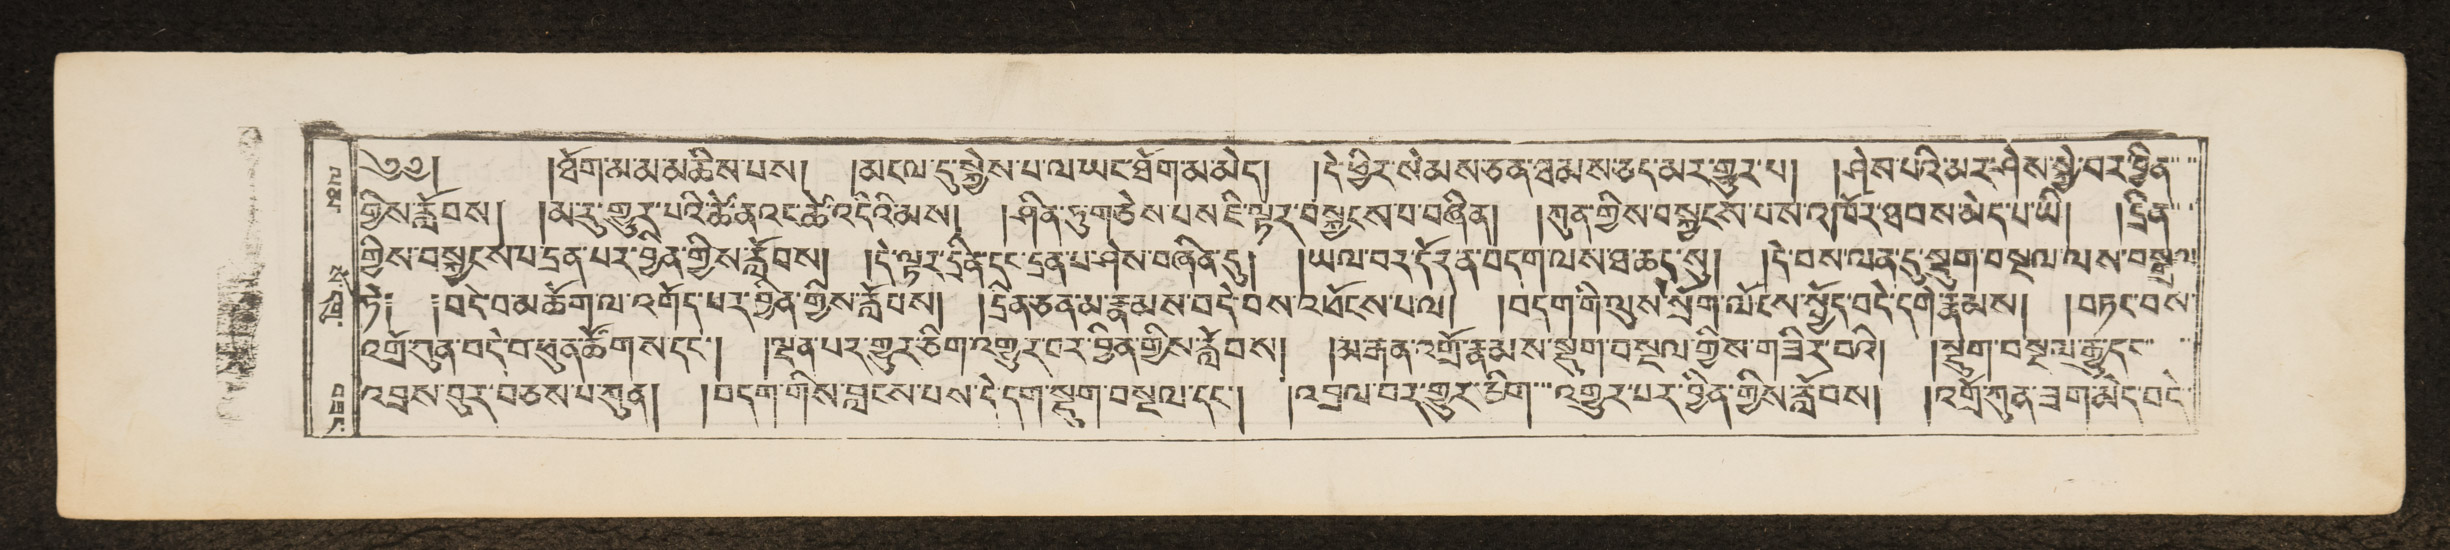 ༄༅། །ཐོག་མ་མ་མཆིས་པས། །མངལ་དུ་སྐྱེས་པ་ལ་ཡང་ཐོག་མ་མེད། །དེ་ཕྱིར་སེམས་ཅན་ཐམས་ཅད་མར་གྱུར་པ། །ཤེས་པའི་མར་ཤེས་སྐྱེ་བར་བྱིན་
གྱིས་རློབས། །མ་རུ་གྱུར་པའི་ཚེ་ན་འང་ཚེ་འདིའི་མས། །ཤིན་ཏུ་གཅེས་པས་ཇི་ལྟར་བསྐྱངས་པ་བཞིན། །ཀུན་གྱིས་བསྐྱངས་པས་འཁོར་ཐབས་མེད་པ་ཡི། །དྲིན་
གྱིས་བསྐྱངས་པ་དྲན་པར་བྱིན་གྱིས་རློབས། །དེ་ལྟར་དྲིན་དང་དྲན་པ་ཤེས་བཞིན་དུ། །ཡལ་བར་དོར་ན་བདག་ལས་ཐ་ཆད་སུ། །དེ་བས་ལན་དུ་སྡུག་བསྔལ་ལས་བསྒྲལ་
ཏེ། །བདེ་བ་མཆོག་ལ་འགོད་པར་བྱིན་གྱིས་རློབས། །དྲིན་ཅན་མ་རྣམས་བདེ་བས་འཕོངས་པ་ལ། །བདག་གི་ལུས་སྲོག་ལོངས་སྤྱོད་བདེ་དགེ་རྣམས། །བཏང་བས་
འགྲོ་ཀུན་བདེ་བ་ཕུན་ཚོགས་དང་། །ལྡན་པར་གྱུར་ཅིག་འགྱུར་བར་བྱིན་གྱིས་རློབས། །མ་རྒན་འགྲོ་རྣམས་སྡུག་བསྔལ་གྱིས་གཟིར་བའི། །སྡུག་བསྔལ་རྒྱུ་དང་
འབྲས་བུར་བཅས་པ་ཀུན། །བདག་གིས་བླངས་པས་དེ་དག་སྡུག་བསྔལ་དང་། །འབྲལ་བར་གྱུར་ཅིག་འགྱུར་པར་བྱིན་གྱིས་རློབས། །འགྲོ་ཀུན་ཟག་མེད་བདེ་